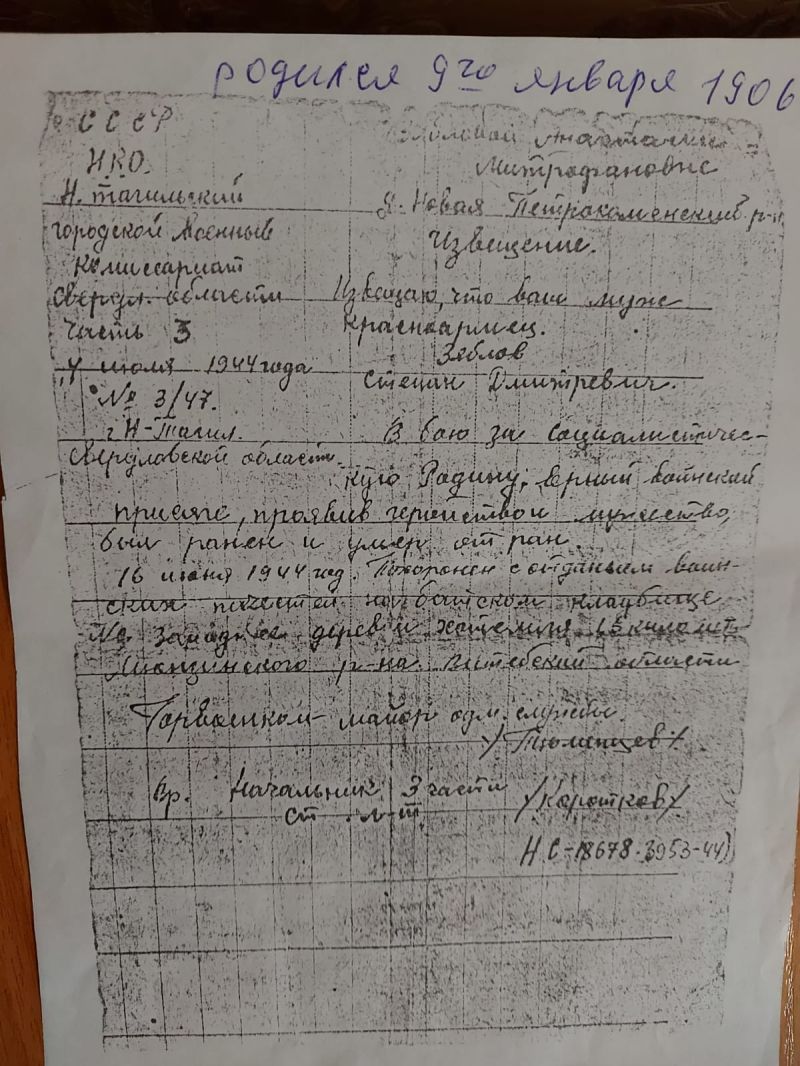 родился 9го января 1906
СССР
НКО.
Н. тагильский
городской Военный
Комиссариат
Свердл. области
Часть 3
4 июля 1944 года
№ 3/47.
г Н-Тагил.
Свердловской области.
Митрофановне
д. Новая Петрокаменский р-н
Извещение.
Извещаю, что ваш муж
Красноармеец.
Зяблов
Степан Дмитревич.
В бою за социалистичес-
кую Родину, верный воинской
присяге, проявив геройство и мужество,
был ранен и умер от ран.
16 июня 1944 год. Похоронен с отданьем воин-
ских почестей на кладбище
деревни
Лиозненского р-на Витебский области
Горвоенком майор адм. службы.
/Тюменцев/
Вр. Начальник 3 части
ст. л-т. /Коротков/
НС-18678-3953-44)